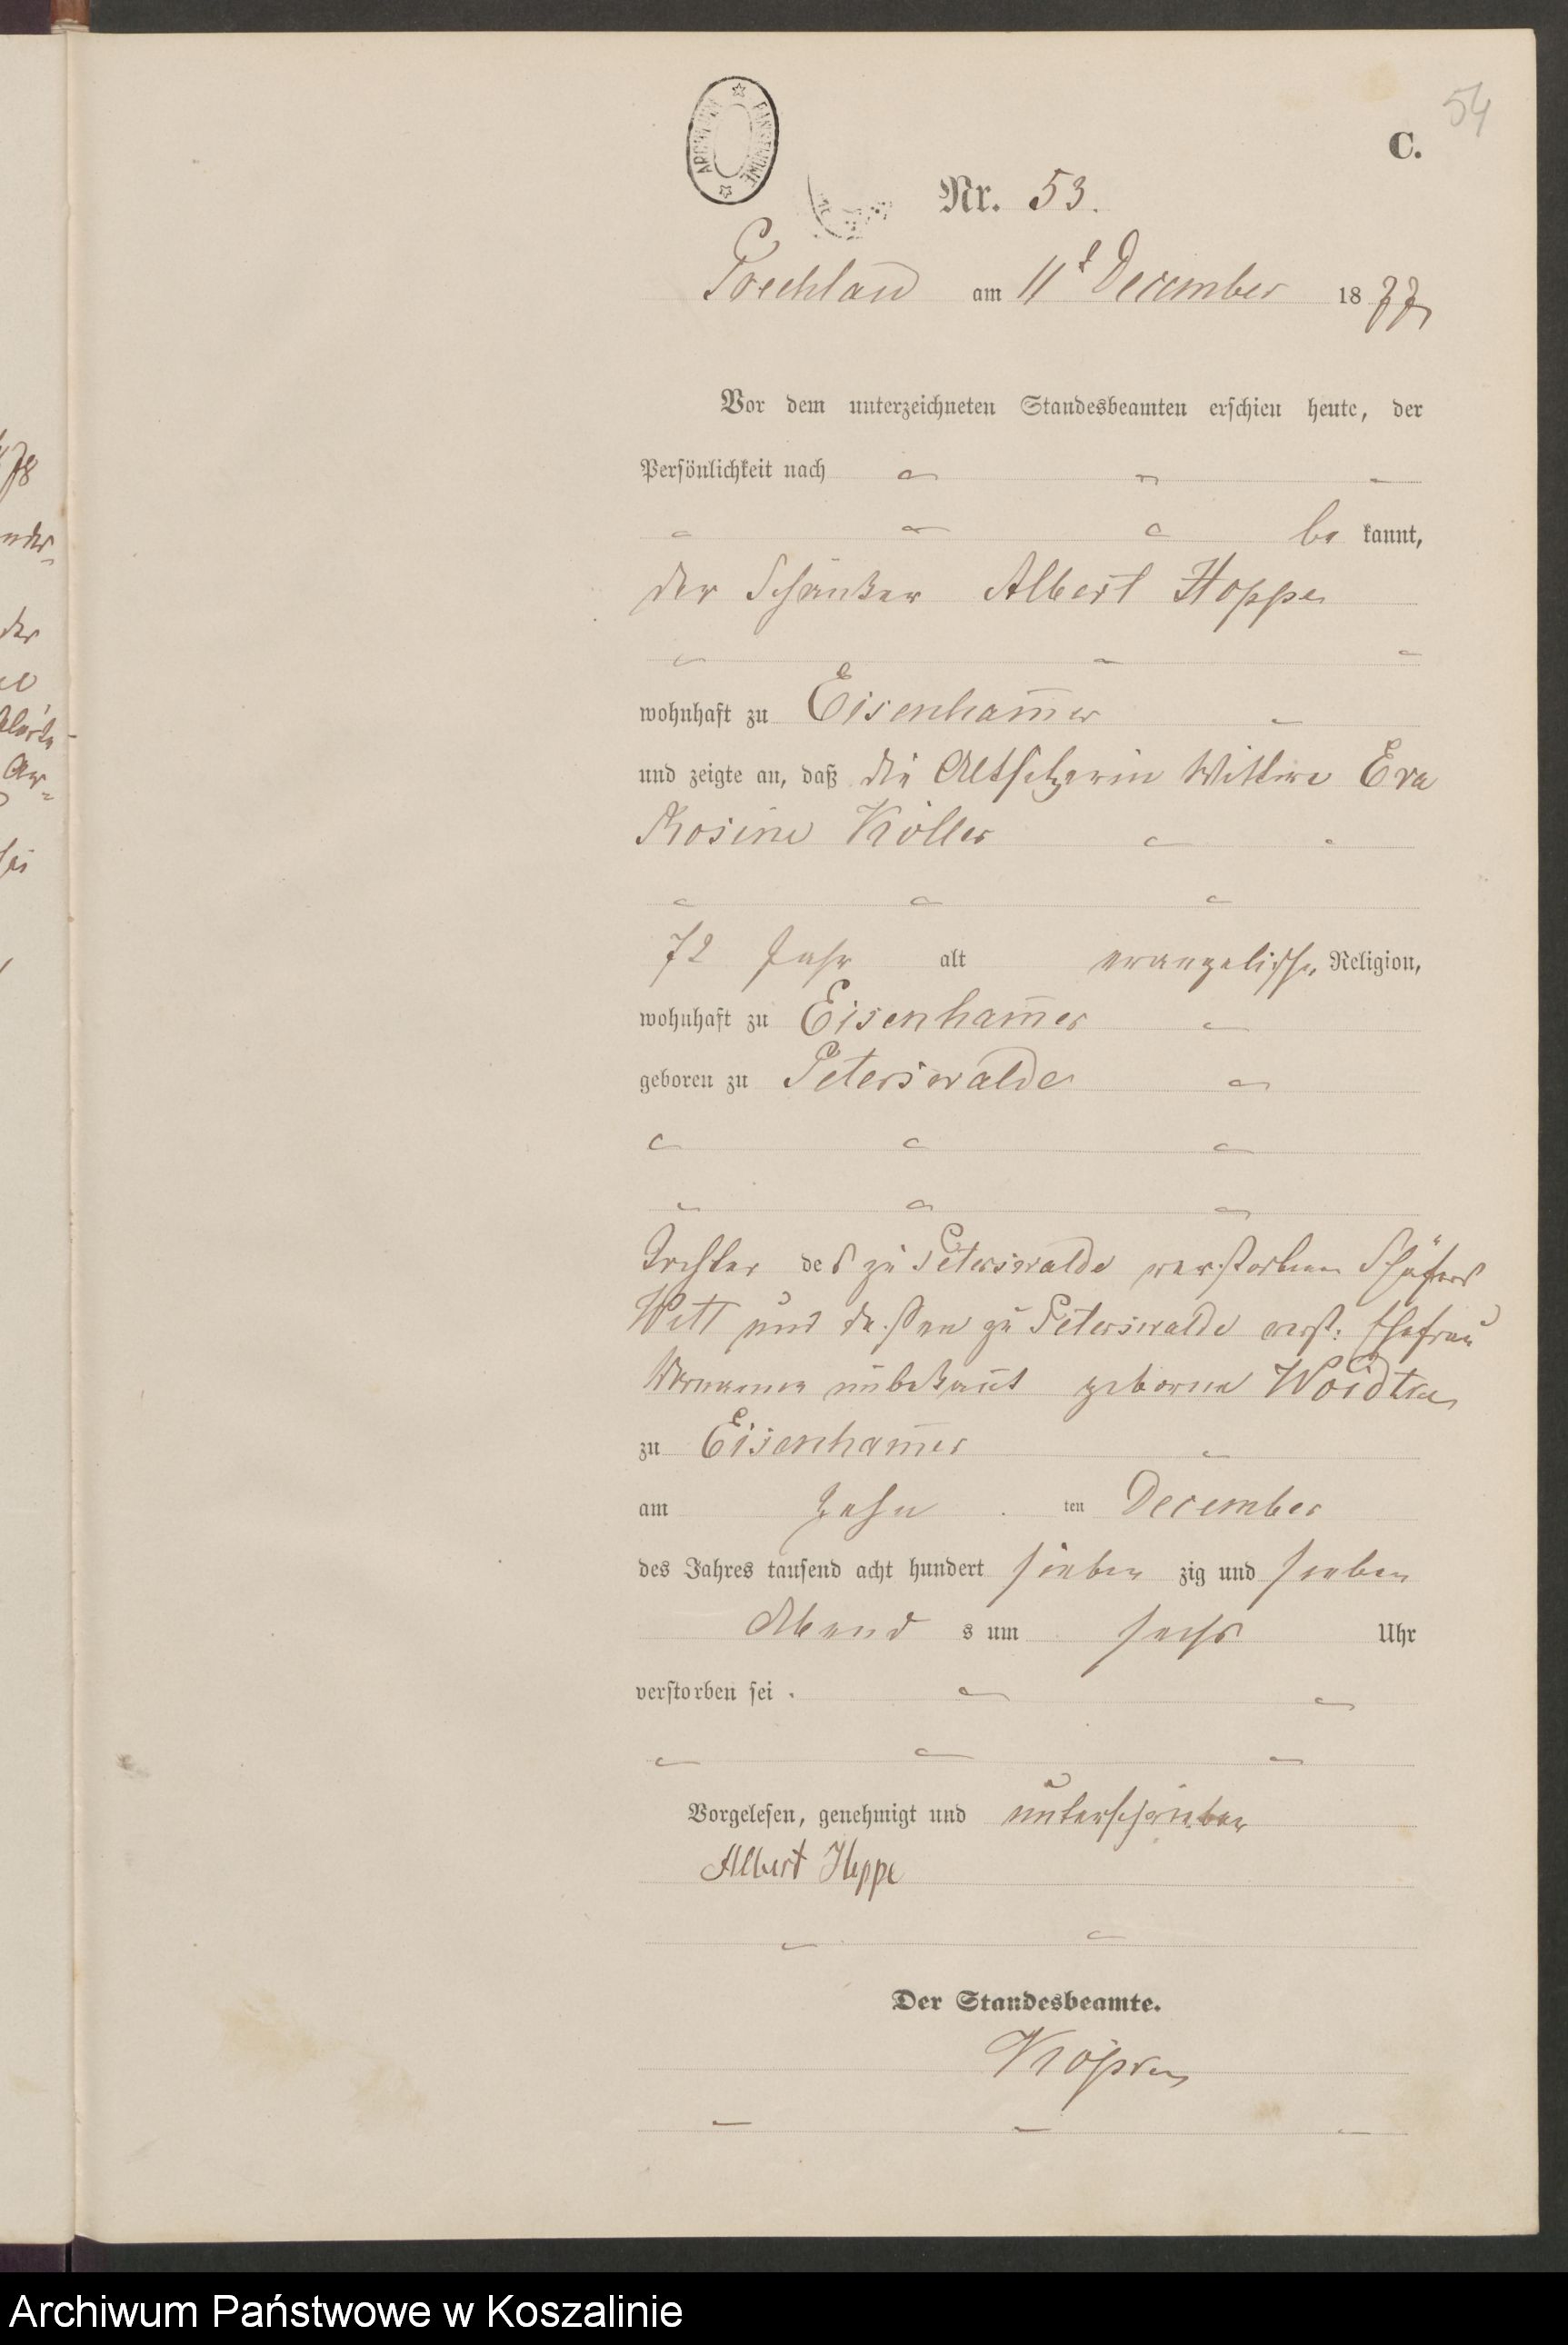 54
C.
ARCHIWUM PAŃSTWOWE
Nr. 53.
Prechlau am 11t December 1877
Vor dem unterzeichneten Standesbeamten erschien heute, der
Persönlichkeit nach
be kannt,
der Schänker Albert Hoppe
wohnhaft zu Eisenham̅er
und zeigte an, daß die Altsitzerin Wittwe Eva
Rosine Köller
72 Jahr alt evangelische Religion,
wohnhaft zu Eisenham̅er
geboren zu Peterswalde
Tochter des zu Peterswalde verstorbenen Schäfers
Witt und dessen zu Peterswalde verst: Ehefrau
Vornamen unbekan̅t geborne Woidtke
zu Eisenham̅er
am zehn ten December
des Jahres tausend acht hundert sieben zig und sieben
Abend s um sechs Uhr
verstorben sei.
Vorgelesen, genehmigt und unterschrieben
Albert Hoppe
Der Standesbeamte.
Archiwum Państwowe w Koszalinie